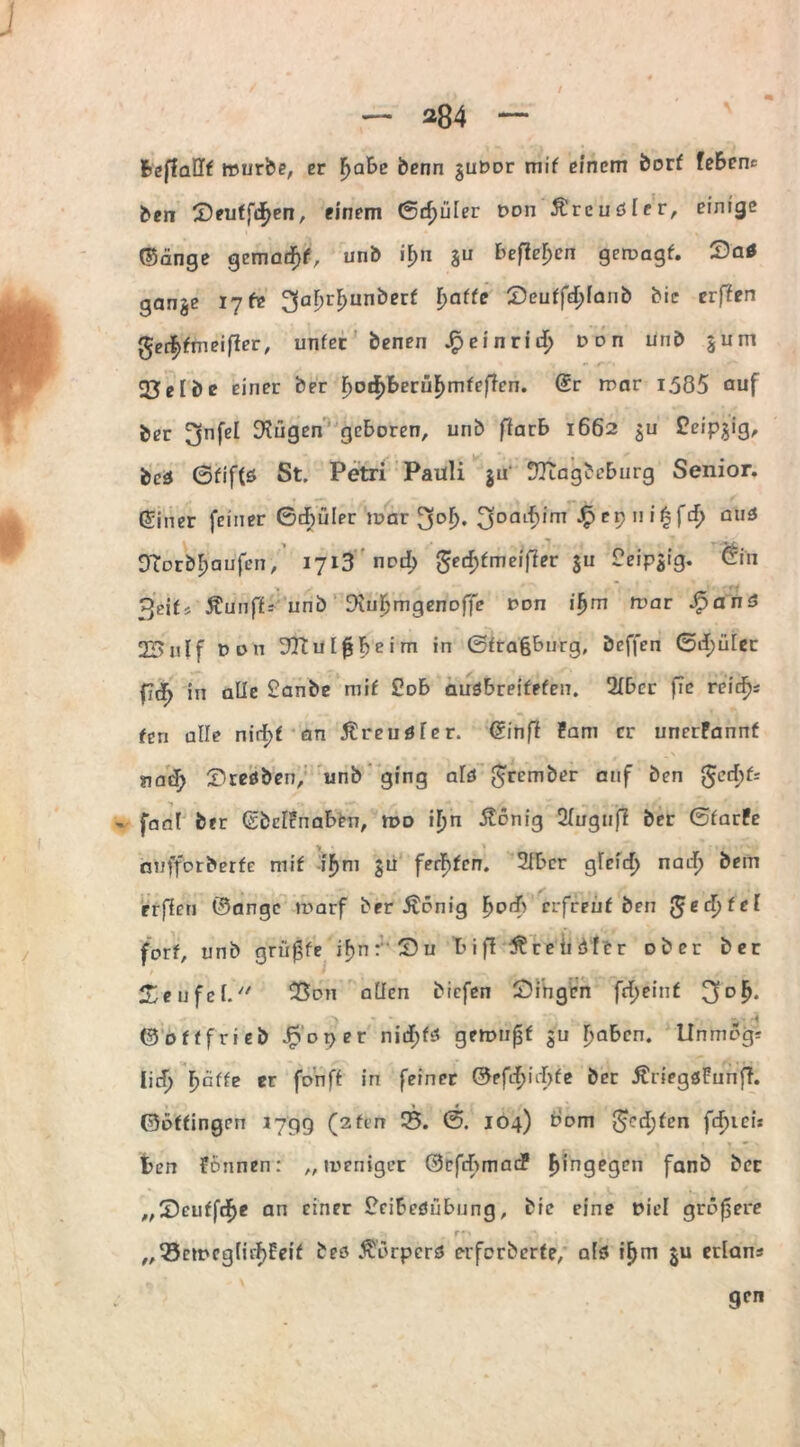 — 284 —
bestallt wurde, er habe denn zuvor mit einem dort leben⸗
den Deutschen, einem Schüler von Kreusler, einige
Gänge gemacht, und ihn zu bestehen gewagt. Das
ganze 17te Jahrhundert hatte Deutschland die ersten
Fechtmeister, unter denen Heinrich von und zum
Velde einer der hochberühmtesten. Er war 1585 auf
der Insel Rügen geboren, und starb 1662 zu Leipzig,
des Stifts St. Petri Pauli zu Magdeburg Senior.
Einer seiner Schüler war Joh. Joachim Heynitzsch aus
Nordhausen, 1713 noch Fechtmeister zu Leipzig. Ein
Zeit⸗ Kunst⸗ und Ruhmgenosse von ihm war Hans
Wulf von Mulßheim in Straßburg, dessen Schüler
sich in alle Lande mit Lob ausbreiteten. Aber sie reich⸗
ten alle nicht an Kreusler. Einst kam er unerkannt
nach Dresden, und ging als Fremder auf den Fecht⸗
saal der Edelknaben, wo ihn König August der Starke
aufforderte mit ihm zu fechten. Aber gleich nach dem
ersten Gange warf der König hoch erfreut den Fechtel
fort, und grüßte ihn: Du bist Kreusler oder der
Teufel." Von allen diesen Dingen scheint Joh.
Gottfried Hoyer nichts gewußt zu haben. Unmög⸗
lich hätte er sonst in seiner Geschichte der Kriegskunst.
Göttingen 1799 (2ten B. S. 104) vom Fechten schrei⸗
ben können: „weniger Geschmack hingegen fand der
„Deutsche an einer Leibesübung, die eine viel größere
„Beweglichkeit des Körpers erforderte, als ihm zu erlan⸗
gen